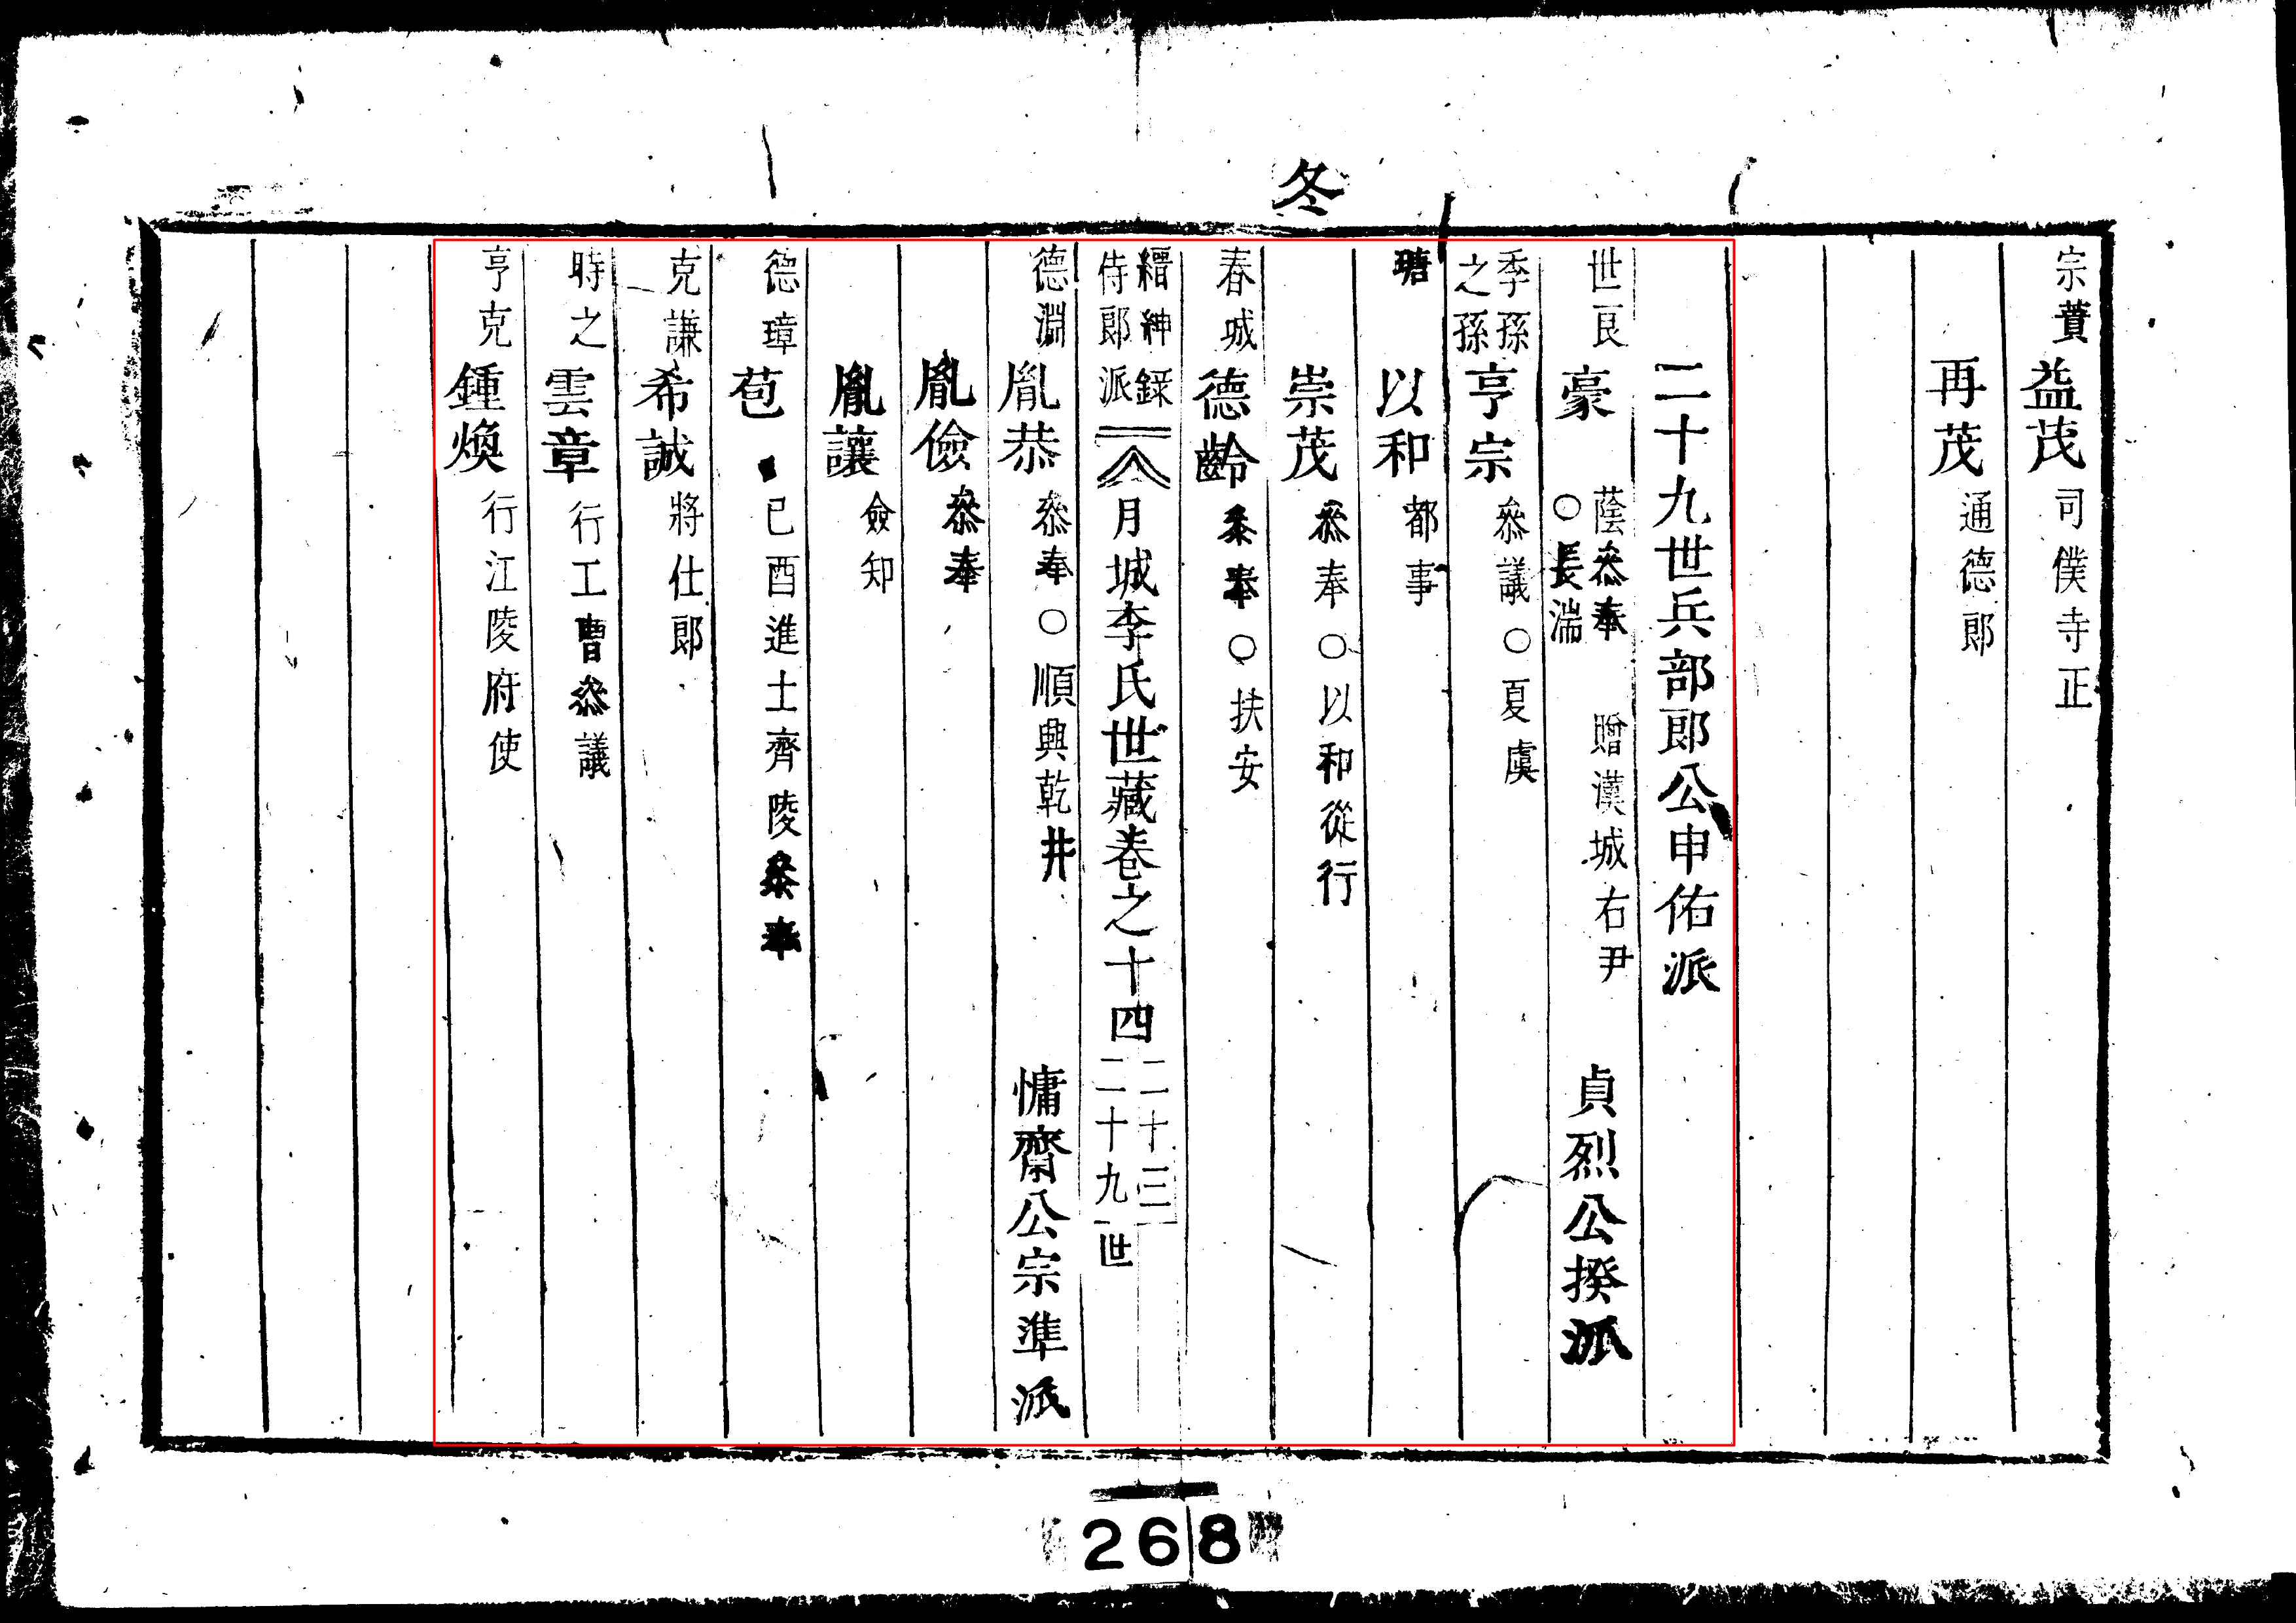 冬
宗蕡 益茂 司僕寺正
再茂 通德郎
二十九世兵部郎公申佑派
世良 豪 蔭叅奉 贈漢城右尹 ○長湍 貞烈公揆派
季孫之孫 亨宗 叅議○夏虞
瑭 以和 都事
崇茂 叅奉○以和從行
春城 德齡 叅奉○扶安
縉紳錄侍郎派 月城李氏世藏卷之十四 二十三 二十九世
德淵 胤恭 叅奉○順興乾井 慵齋公宗準派
胤儉 叅奉
胤讓 僉知
德璋 苞 己酉進士齊陵叅奉
克謙 希誠 將仕郎
時之 雲章 行工曹叅議
亨克 鍾煥 行江陵府使
268